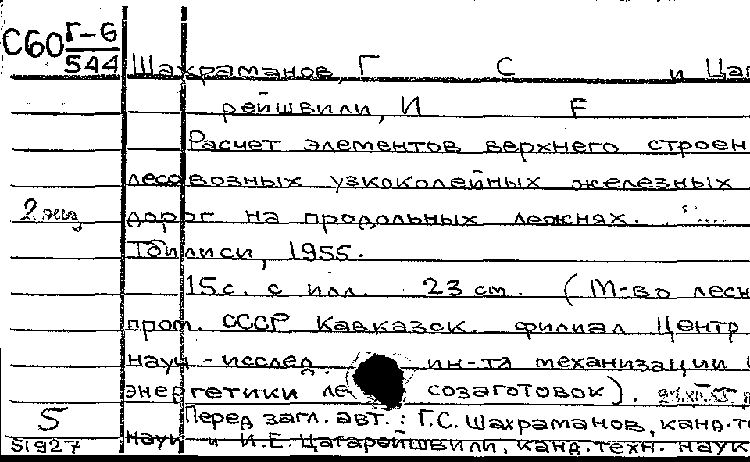 С60 Г-6
544
Шахраманов, Г С и Цаг
рейшвили, И Е
Расчет элементов верхнего строен
лесовозных узкоколейных железных
2 экз
дорог на продольных лежнях.
Тбилиси, 1955.
15 с. с илл. 23 см. (М-во лесн
пром. СССР Кавказск. филиал Центр
науч-исслед. ин-та механизации
энергетики ле созаготовок).
5
Перед загл. авт.: Г.С. Шахраманов, канд. те
51927
наук и И.Е. Цагарейшвили, канд. техн. наук